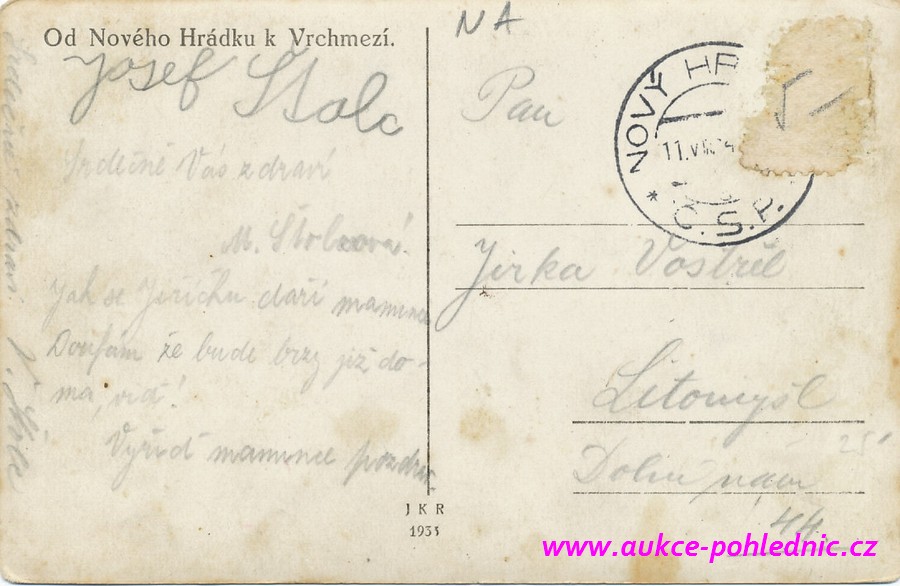 Od Nového Hrádku k Vrchmezí.
Josef Štolc
Srdečně Vás zdraví
M. Štolcová.
Jak se Jiříčku daří mamince
Doufám že bude brzy již do-
ma, viď!
Vyřiď mamince pozdrav.
Srdečně zdraví
J K R
1935
NA
Pan
NOVÝ HR
11.VII.
Č.S.P.
5-
Jirka Vostřel
Litomyšl
Dolní nám
44
25
www.aukce-pohlednic.cz